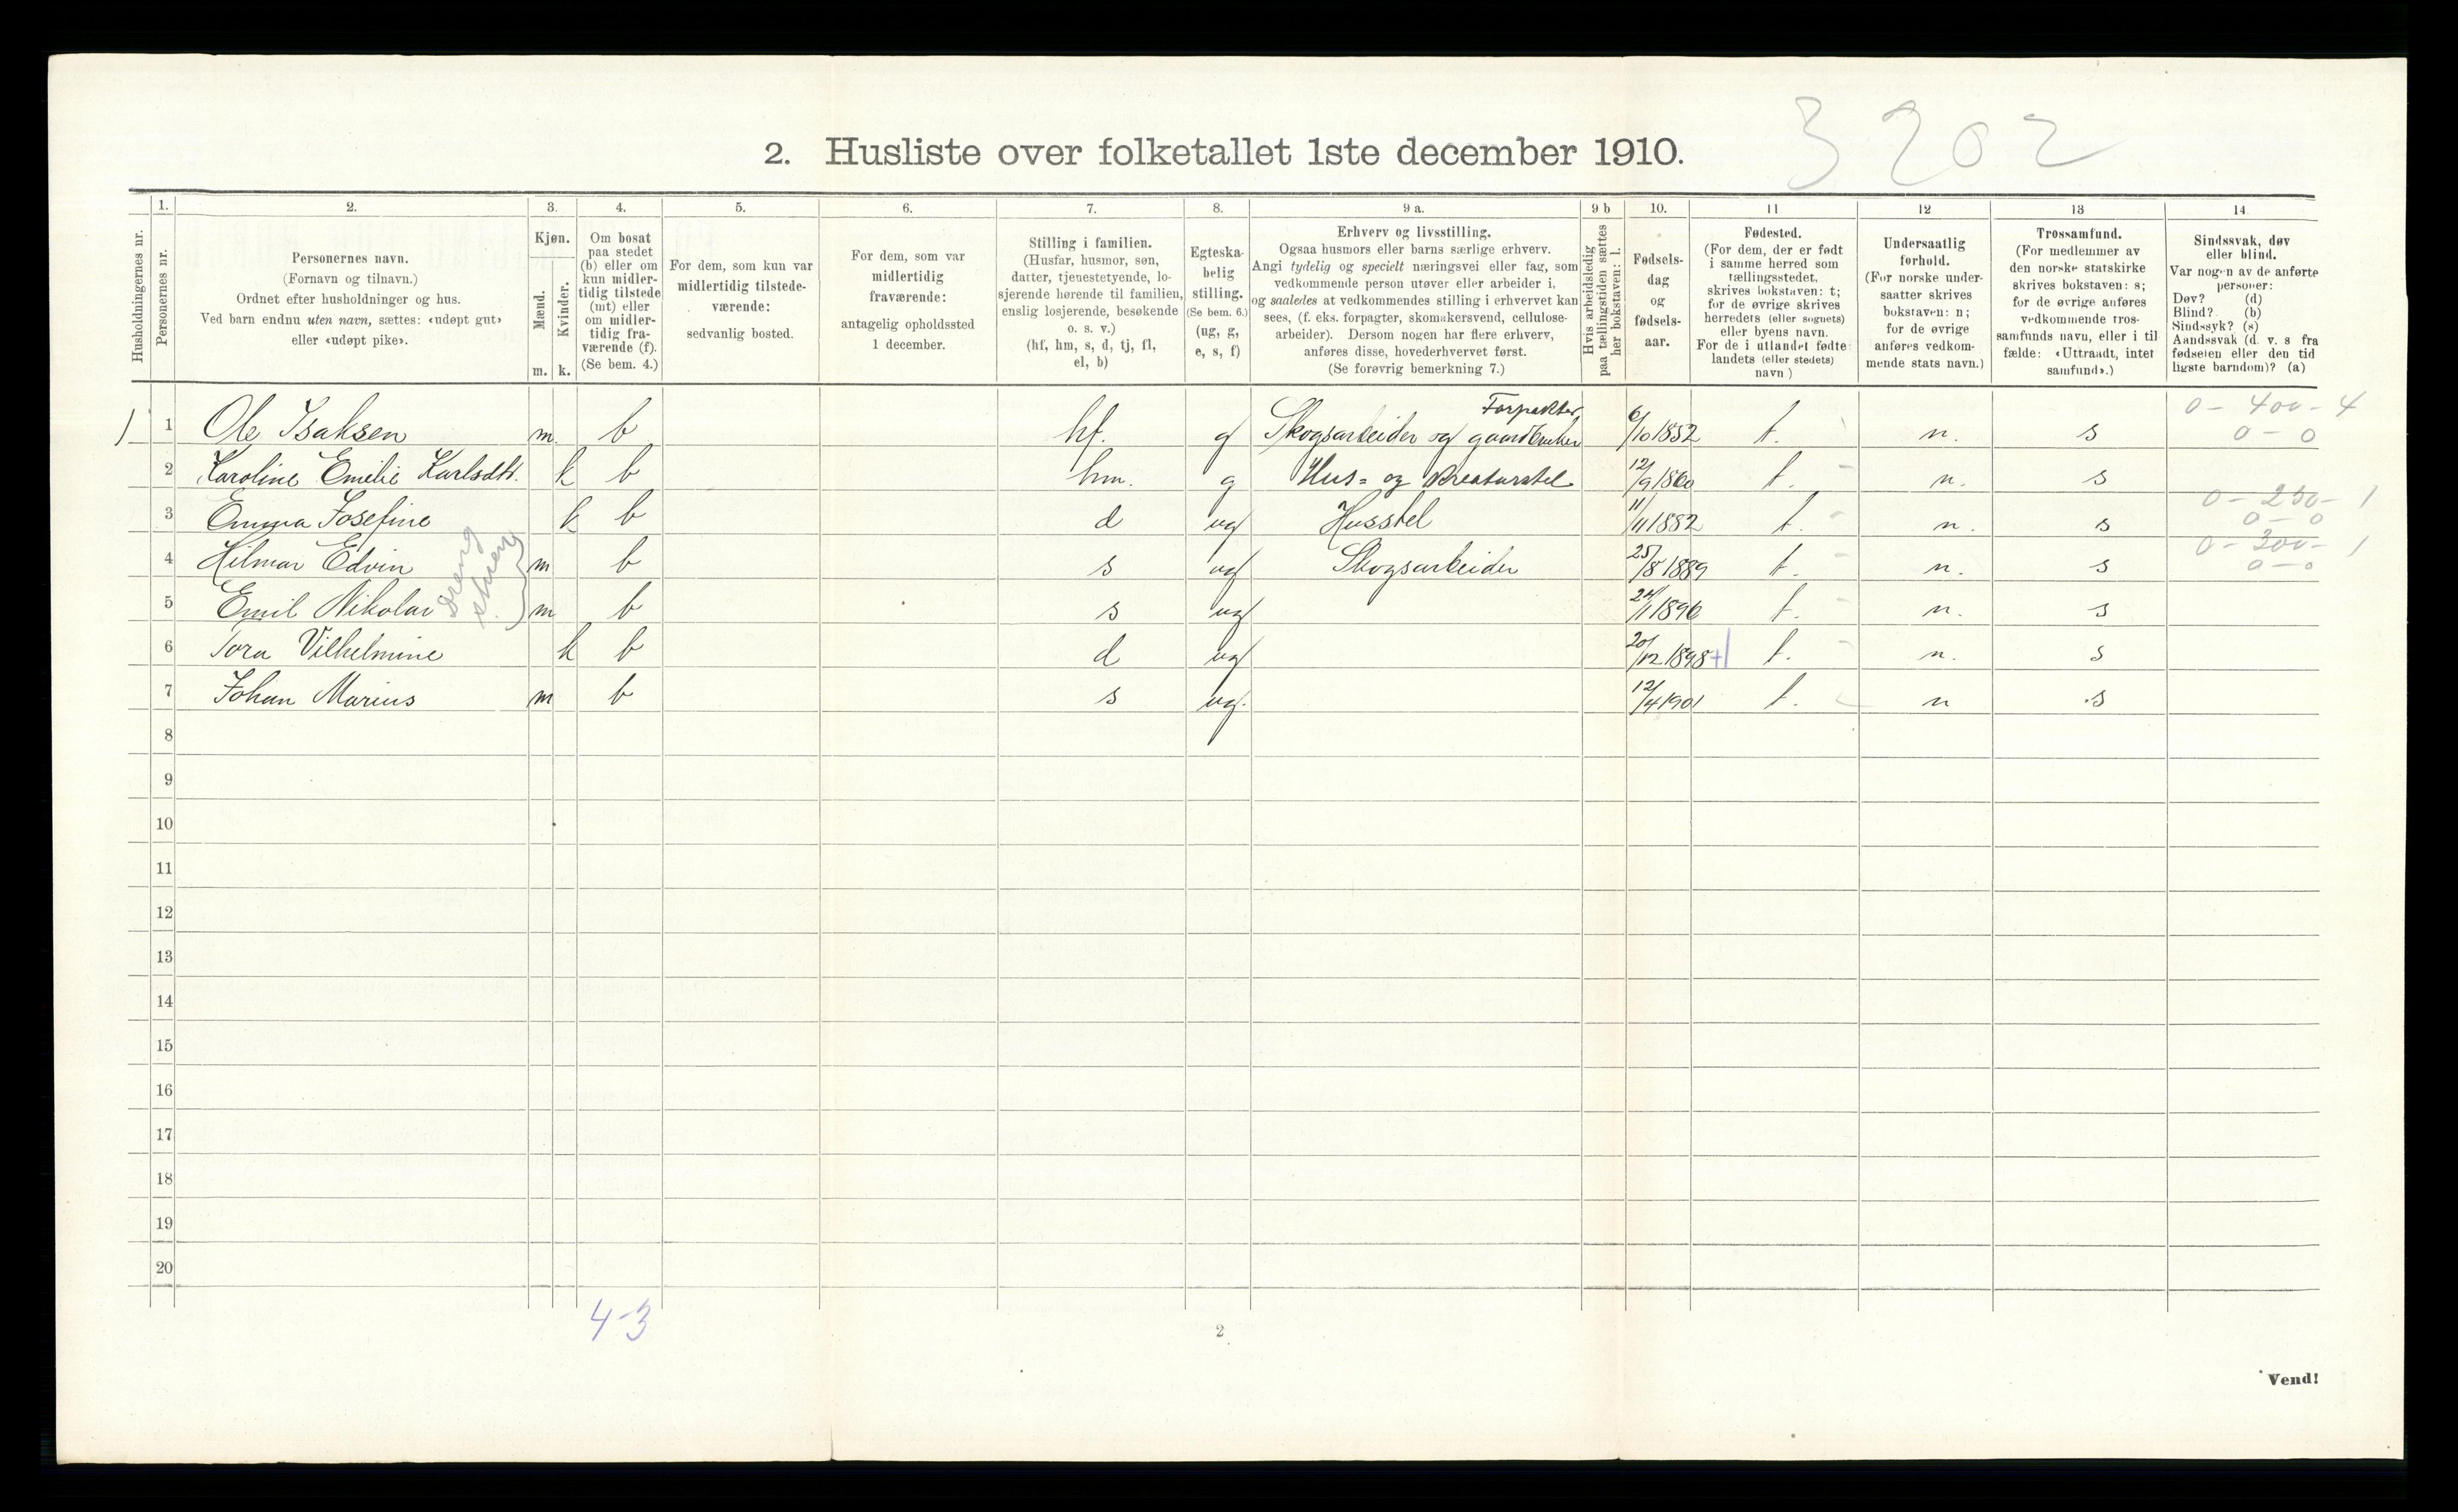 3 202
2. Husliste over folketallet 1ste december 1910.
1. 2. 3. 4. 5. 6. 7. 8. 9 a. 9 b 10. 11 12 13 14
Husholdningernes nr.
Personernes nr.
Personernes navn.
(Fornavn og tilnavn.)
Ordnet efter husholdninger og hus.
Ved barn endnu uten navn, sættes: «udøpt gut»
eller «udøpt pike».
Kjøn.
Mænd.
Kvinder.
m. k.
Om bosat
paa stedet
(b) eller om
kun midler-
tidig tilstede
(mt) eller
om midler-
tidig fra-
værende (f).
(Se bem. 4.)
For dem, som kun var
midlertidig tilstede-
værende:
sedvanlig bosted.
For dem, som var
midlertidig
fraværende:
antagelig opholdssted
1 december.
Stilling i familien.
(Husfar, husmor, søn,
datter, tjenestetyende, lo-
sjerende hørende til familien,
enslig losjerende, besøkende
o. s. v.)
(hf, hm, s, d, tj, fl,
el, b)
Egteska-
belig
stilling.
(Se bem. 6.)
(ug, g,
e, s, f)
Erhverv og livsstilling.
Ogsaa husmors eller barns særlige erhverv.
Angi tydelig og specielt næringsvei eller fag, som
vedkommende person utøver eller arbeider i,
og saaledes at vedkommendes stilling i erhvervet kan
sees, (f. eks. forpagter, skomakersvend, cellulose-
arbeider). Dersom nogen har flere erhverv,
anføres disse, hovederhvervet først.
(Se forøvrig bemerkning 7.)
Hvis arbeidsledig
paa tællingstiden sættes
her bokstaven: l.
Fødsels-
dag
og
fødsels-
aar.
Fødested.
(For dem, der er født
i samme herred som
tællingsstedet,
skrives bokstaven: t;
for de øvrige skrives
herredets (eller sognets)
eller byens navn.
For de i utlandet fødte
landets (eller stedets)
navn)
Undersaatlig
forhold.
(For norske under-
saatter skrives
bokstaven: n;
for de øvrige
anføres vedkom-
mende stats navn.)
Trossamfund.
(For medlemmer av
den norske statskirke
skrives bokstaven: s;
for de øvrige anføres
vedkommende tros-
samfunds navn, eller i til
fælde: «Uttraadt, intet
samfund».)
Sindssvak, døv
eller blind.
Var nogen av de anførte
personer:
Døv? (d)
Blind? (b)
Sindssyk? (s)
Aandssvak (d. v. s fra
fødselen eller den tid
ligste barndom)? (a)
Forpakter 0 - 400 - 4
1) 1 Ole Isaksen m. b hf. g Skogsarbeider og gaardbruker 6/10 1852 t. n. s 0 - 0
2 Karoline Emelie Karlsdtr. k b hm. g Hus= og kreaturstel 12/9 1860 t. n. s
0 - 250 - 1
3 Emma Josefine k b d ug Husstel 11/11 1882 t. n. s 0 - 0
0 - 300 - 1
4 Hilmar Edvin m b s ug Skogsarbeider 25/8 1889 t. n. s 0 - 0
5 Emil Nikolai m b s ug 24/11 1896 t. n. s
6 Tora Vilhelmine k b d ug 20/12 1898 +| t. n. s
7 Johan Marius m b s ug. 12/4 1901 t. n s
8
9
10
11
12
13
14
15
16
17
18
19
20
4-3
2
Vend!